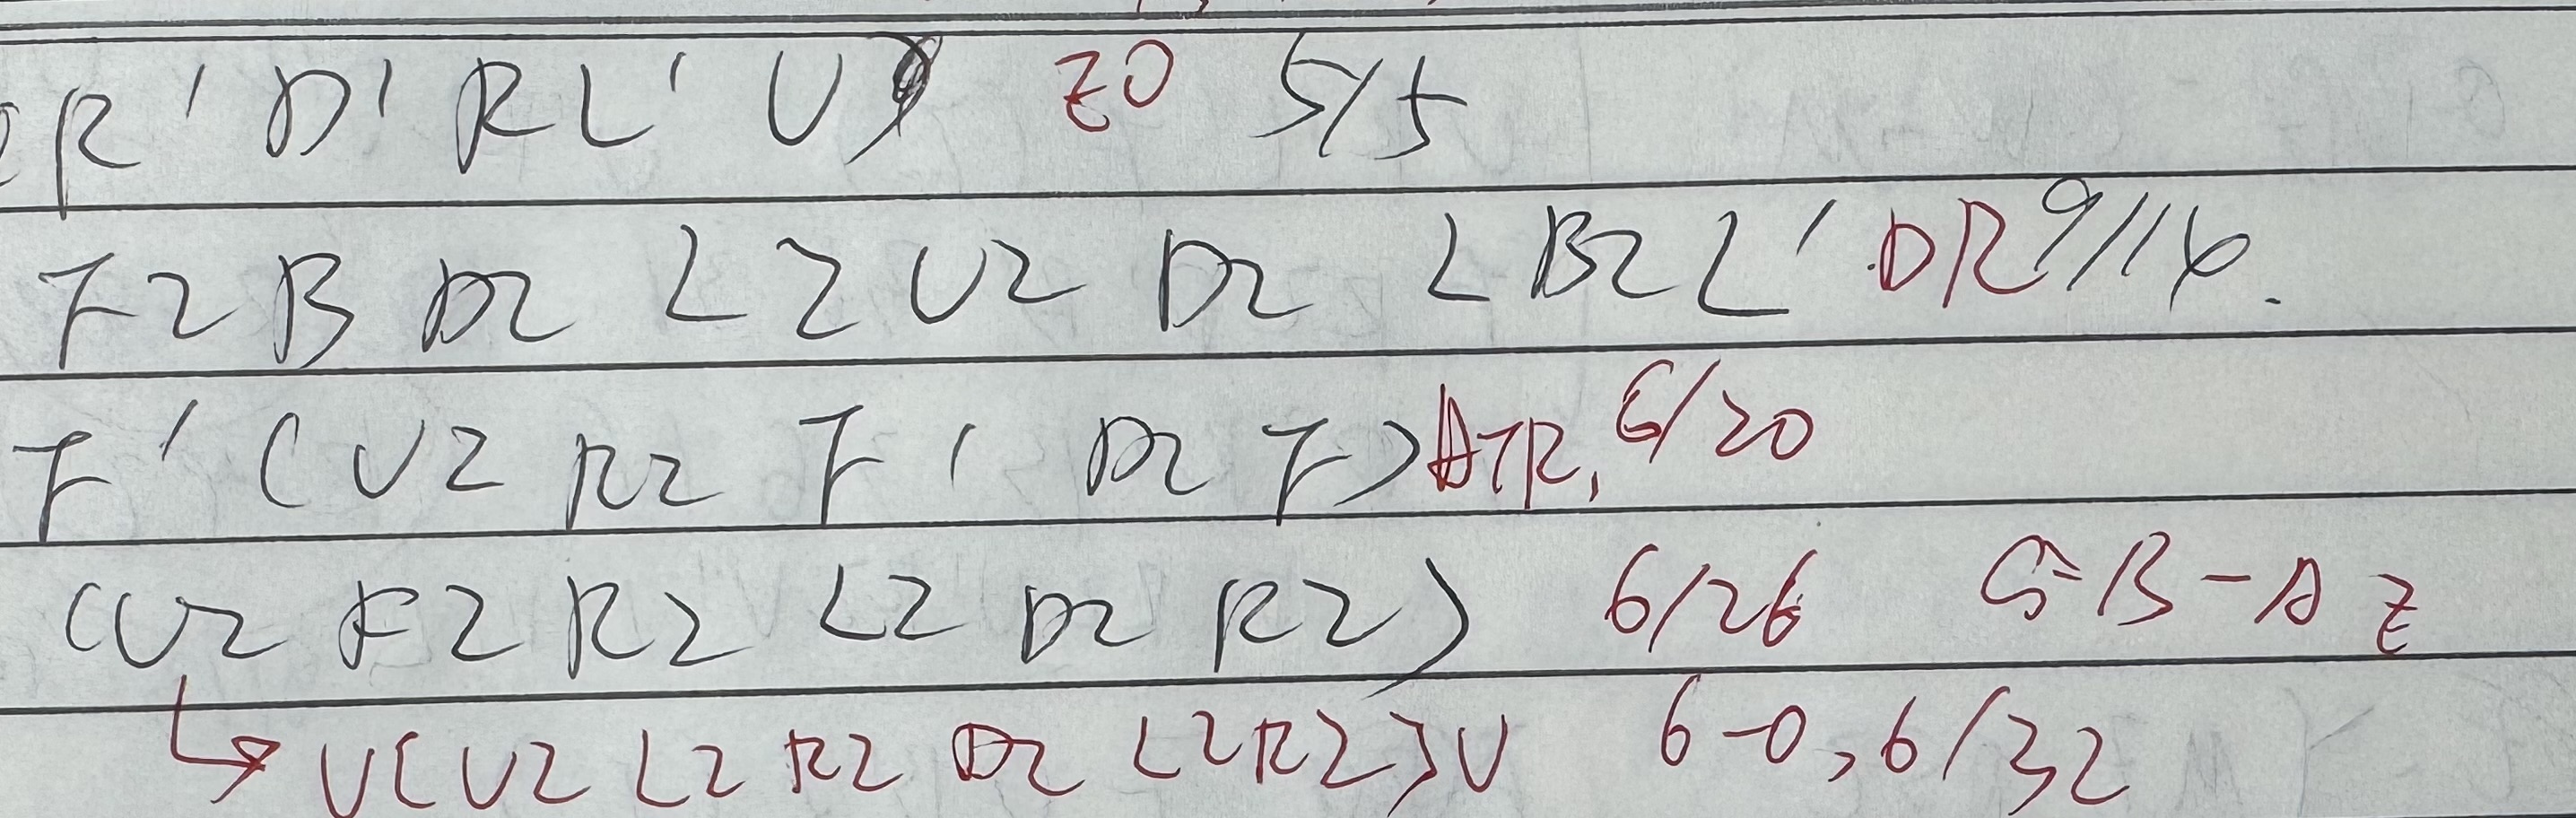 (R' D' R L' U) EO 5/5
F2 B D2 L2 U2 D2 L B2 L' DR 9/14.
F' (U2 R2 F' D2 F) HTR, 6/20
(U2 F2 R2 L2 D2 R2) 6/26
U[U2 L2 R2 D2 L2 R2]U 6-0, 6/32